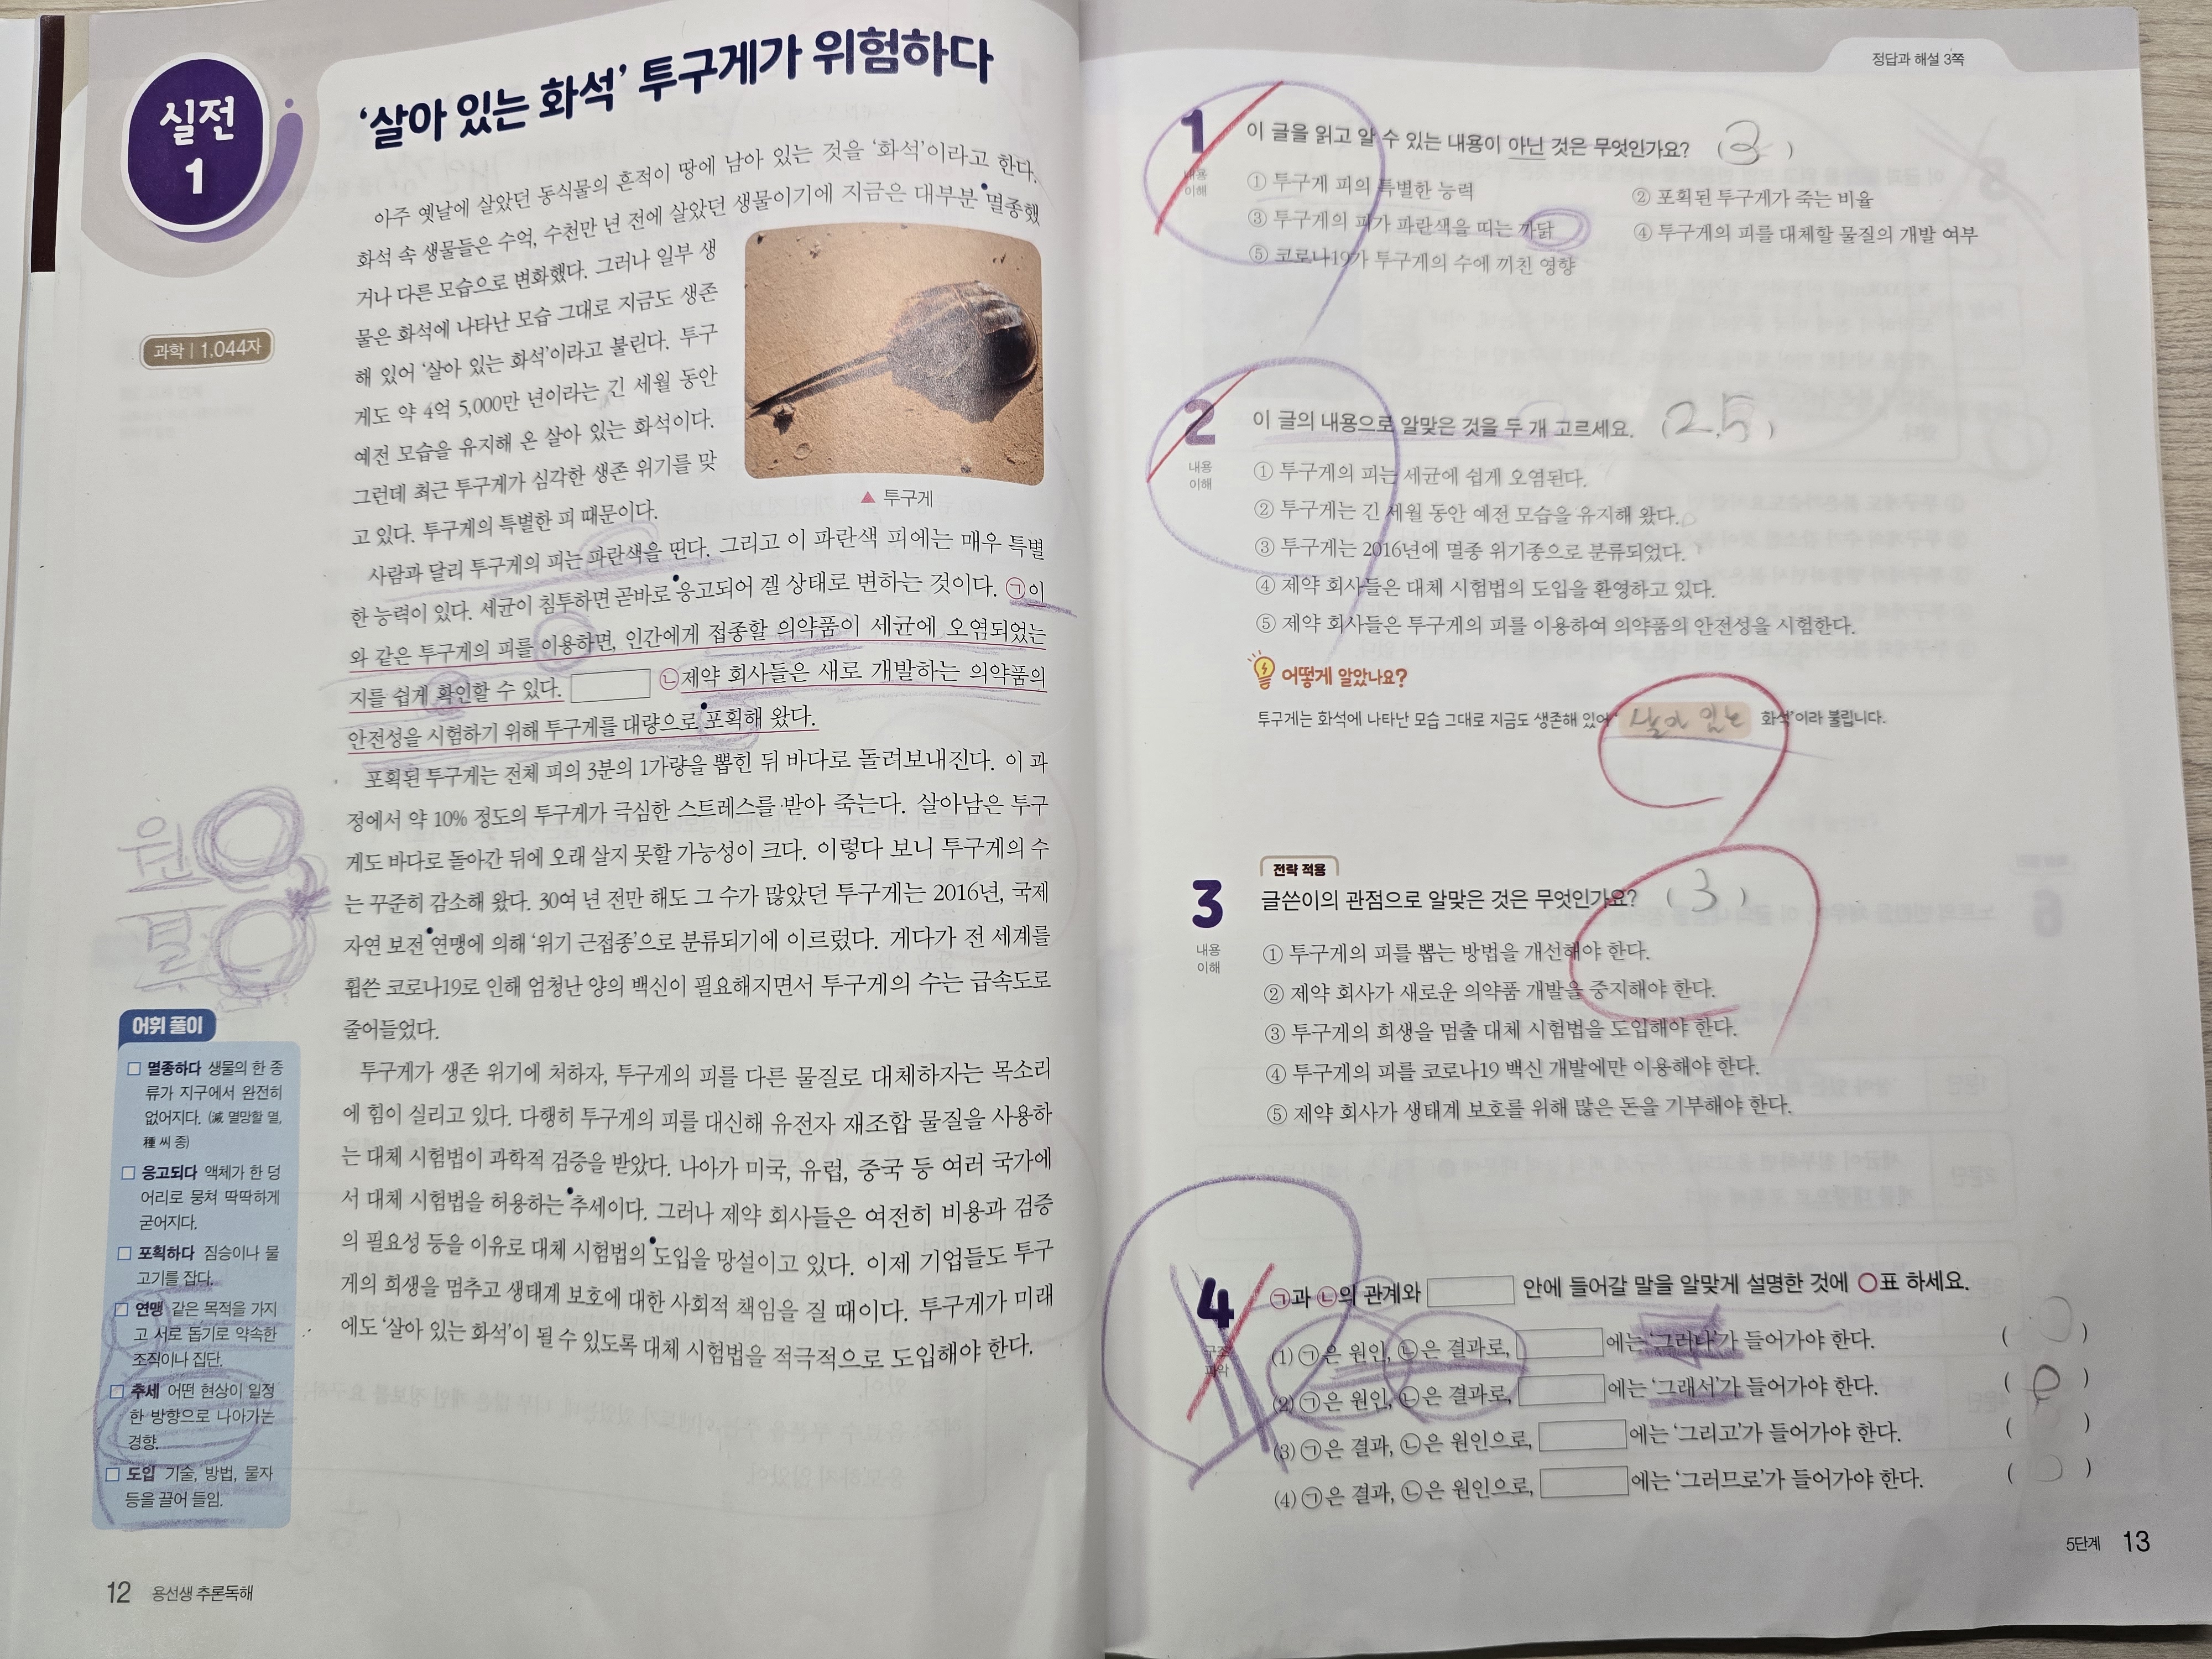 실전
1
'살아 있는 화석' 투구게가 위험하다
과학 | 1,044자
아주 옛날에 살았던 동식물의 흔적이 땅에 남아 있는 것을 '화석'이라고 한다.
화석 속 생물들은 수억, 수천만 년 전에 살았던 생물이기에 지금은 대부분 멸종했
거나 다른 모습으로 변화했다. 그러나 일부 생
물은 화석에 나타난 모습 그대로 지금도 생존
해 있어 '살아 있는 화석'이라고 불린다. 투구
게도 약 4억 5,000만 년이라는 긴 세월 동안
예전 모습을 유지해 온 살아 있는 화석이다.
그런데 최근 투구게가 심각한 생존 위기를 맞
고 있다. 투구게의 특별한 피 때문이다.
▲ 투구게
사람과 달리 투구게의 피는 파란색을 띤다. 그리고 이 파란색 피에는 매우 특별
한 능력이 있다. 세균이 침투하면 곧바로 응고되어 겔 상태로 변하는 것이다. ㉠이
와 같은 투구게의 피를 이용하면, 인간에게 접종할 의약품이 세균에 오염되었는
지를 쉽게 확인할 수 있다. ㉡제약 회사들은 새로 개발하는 의약품의
안전성을 시험하기 위해 투구게를 대량으로 포획해 왔다.
포획된 투구게는 전체 피의 3분의 1가량을 뽑힌 뒤 바다로 돌려보내진다. 이 과
정에서 약 10% 정도의 투구게가 극심한 스트레스를 받아 죽는다. 살아남은 투구
게도 바다로 돌아간 뒤에 오래 살지 못할 가능성이 크다. 이렇다 보니 투구게의 수
는 꾸준히 감소해 왔다. 30여 년 전만 해도 그 수가 많았던 투구게는 2016년, 국제
자연 보전 연맹에 의해 '위기 근접종'으로 분류되기에 이르렀다. 게다가 전 세계를
휩쓴 코로나19로 인해 엄청난 양의 백신이 필요해지면서 투구게의 수는 급속도로
줄어들었다.
투구게가 생존 위기에 처하자, 투구게의 피를 다른 물질로 대체하자는 목소리
에 힘이 실리고 있다. 다행히 투구게의 피를 대신해 유전자 재조합 물질을 사용하
는 대체 시험법이 과학적 검증을 받았다. 나아가 미국, 유럽, 중국 등 여러 국가에
서 대체 시험법을 허용하는 추세이다. 그러나 제약 회사들은 여전히 비용과 검증
의 필요성 등을 이유로 대체 시험법의 도입을 망설이고 있다. 이제 기업들도 투구
게의 희생을 멈추고 생태계 보호에 대한 사회적 책임을 질 때이다. 투구게가 미래
에도 '살아 있는 화석'이 될 수 있도록 대체 시험법을 적극적으로 도입해야 한다.
어휘 풀이
□ 멸종하다 생물의 한 종
류가 지구에서 완전히
없어지다. (滅 멸망할 멸,
種 씨 종)
□ 응고되다 액체가 한 덩
어리로 뭉쳐 딱딱하게
굳어지다.
□ 포획하다 짐승이나 물
고기를 잡다.
□ 연맹 같은 목적을 가지
고 서로 돕기로 약속한
조직이나 집단.
□ 추세 어떤 현상이 일정
한 방향으로 나아가는
경향.
□ 도입 기술, 방법, 물자
등을 끌어 들임.
12 용선생 추론독해
정답과 해설 3쪽
1 이 글을 읽고 알 수 있는 내용이 아닌 것은 무엇인가요? ( 3 )
내용
이해
① 투구게 피의 특별한 능력
② 포획된 투구게가 죽는 비율
③ 투구게의 피가 파란색을 띠는 까닭
④ 투구게의 피를 대체할 물질의 개발 여부
⑤ 코로나19가 투구게의 수에 끼친 영향
2 이 글의 내용으로 알맞은 것을 두 개 고르세요. ( 2,5 )
내용
이해
① 투구게의 피는 세균에 쉽게 오염된다.
② 투구게는 긴 세월 동안 예전 모습을 유지해 왔다.
③ 투구게는 2016년에 멸종 위기종으로 분류되었다.
④ 제약 회사들은 대체 시험법의 도입을 환영하고 있다.
⑤ 제약 회사들은 투구게의 피를 이용하여 의약품의 안전성을 시험한다.
어떻게 알았나요?
투구게는 화석에 나타난 모습 그대로 지금도 생존해 있어 '살아 있는 화석'이라 불립니다.
전략 적용
3 글쓴이의 관점으로 알맞은 것은 무엇인가요? ( 3 )
내용
이해
① 투구게의 피를 뽑는 방법을 개선해야 한다.
② 제약 회사가 새로운 의약품 개발을 중지해야 한다.
③ 투구게의 희생을 멈출 대체 시험법을 도입해야 한다.
④ 투구게의 피를 코로나19 백신 개발에만 이용해야 한다.
⑤ 제약 회사가 생태계 보호를 위해 많은 돈을 기부해야 한다.
4 ㉠과 ㉡의 관계와 안에 들어갈 말을 알맞게 설명한 것에 ○표 하세요.
구조
파악
(1) ㉠은 원인, ㉡은 결과로, 에는 '그러나'가 들어가야 한다. ( )
(2) ㉠은 원인, ㉡은 결과로, 에는 '그래서'가 들어가야 한다. ( ○ )
(3) ㉠은 결과, ㉡은 원인으로, 에는 '그리고'가 들어가야 한다. ( )
(4) ㉠은 결과, ㉡은 원인으로, 에는 '그러므로'가 들어가야 한다. ( )
5단계 13